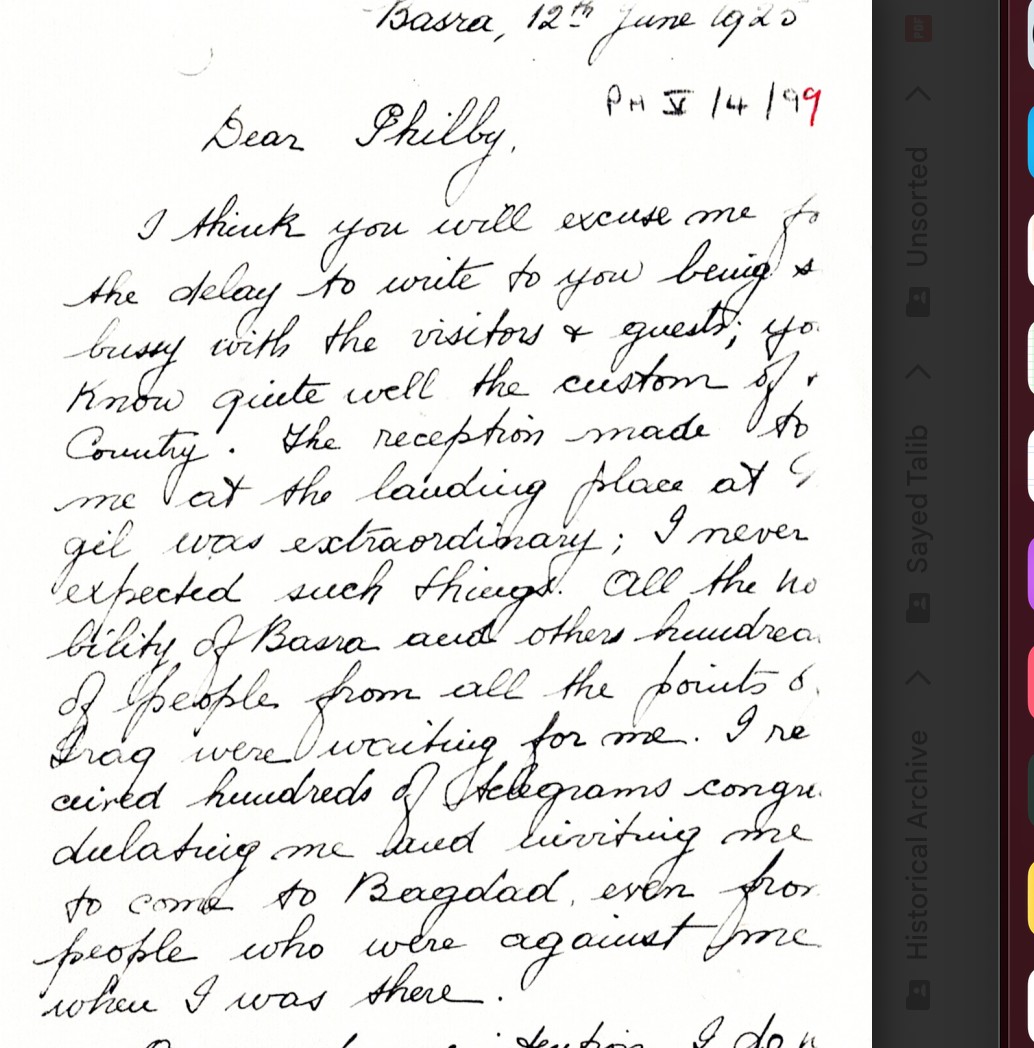 Basra, 12th June 1925
PH V /4/99
Dear Philby,
I think you will excuse me fo
the delay to write to you being s
bussy with the visitors & guests; yo
Know quite well the custom of
Country. The reception made to
me at the landing place at
gil was extraordinary; I never
expected such things. All the no
bility of Basra and others hundred
of people from all the points o
Iraq were waiting for me. I re
ceived hundreds of telegrams congra
dulating me and inviting me
to come to Bagdad, even from
people who were against me
when I was there.
I do n
PDF
Unsorted
Sayed Talib
Historical Archive